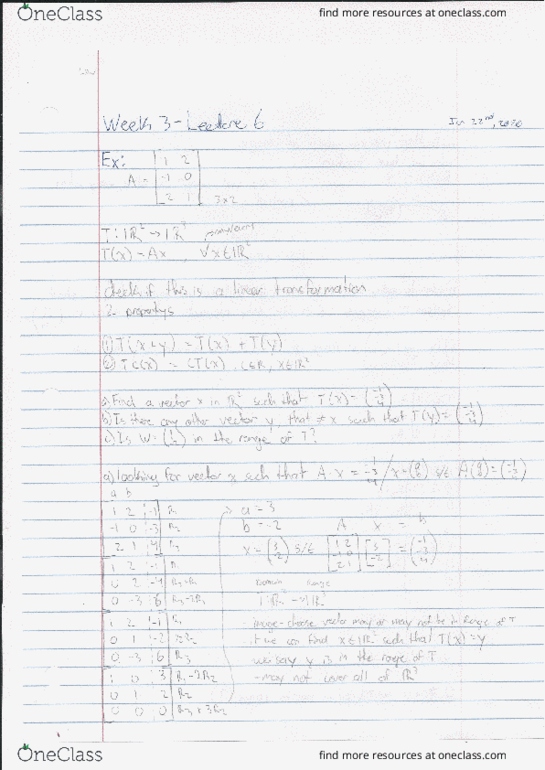 OneClass
find more resources at oneclass.com
Week 3 - Lecture 6
22nd, 2020
Ex:
A =
1 2
-1 0
2 1
3x2
T: IR² → IR³
T(x) = Ax , ∀x∈IR²
check if this is a linear transformation
2 propertys
① T(x+y) = T(x) + T(y)
② T c(x) = cT(x) c∈R, x∈IR²
a) Find a vector x in IR² such that T(x) = (-1 -3 4)
b) Is there any other vector y, that ≠ x such that T(y) = (-1 -3 4)
c) Is W = in the range of T?
a) looking for vector x such that A·x = -1 -3 4 / x = (a b) s/t A(a b) = (-1 -3 4)
a b
1 2 -1 R₁
-1 0 -3 R₂
2 1 4 R₃
1 2 -1 R₁
0 2 -4
0 -3 6
1 2 -1 R₁
0 1 -2
0 -3 6 R₃
1 0 3 R₁-2R₂
0 1 2 R₂
0 0 0 R₃+3R₂
a = 3
b = -2
A x = b
x = (3 -2) s/t [1 2 -1 0 2 1] [3 -2] = (-1 -3 4)
Domain Range
T: IR² → IR³
- image - choose vector may or may not be in Range of T
if we can find x∈IR² such that T(x) = y
we say y is in the range of T
- may not cover all of IR³
OneClass
find more resources at oneclass.com